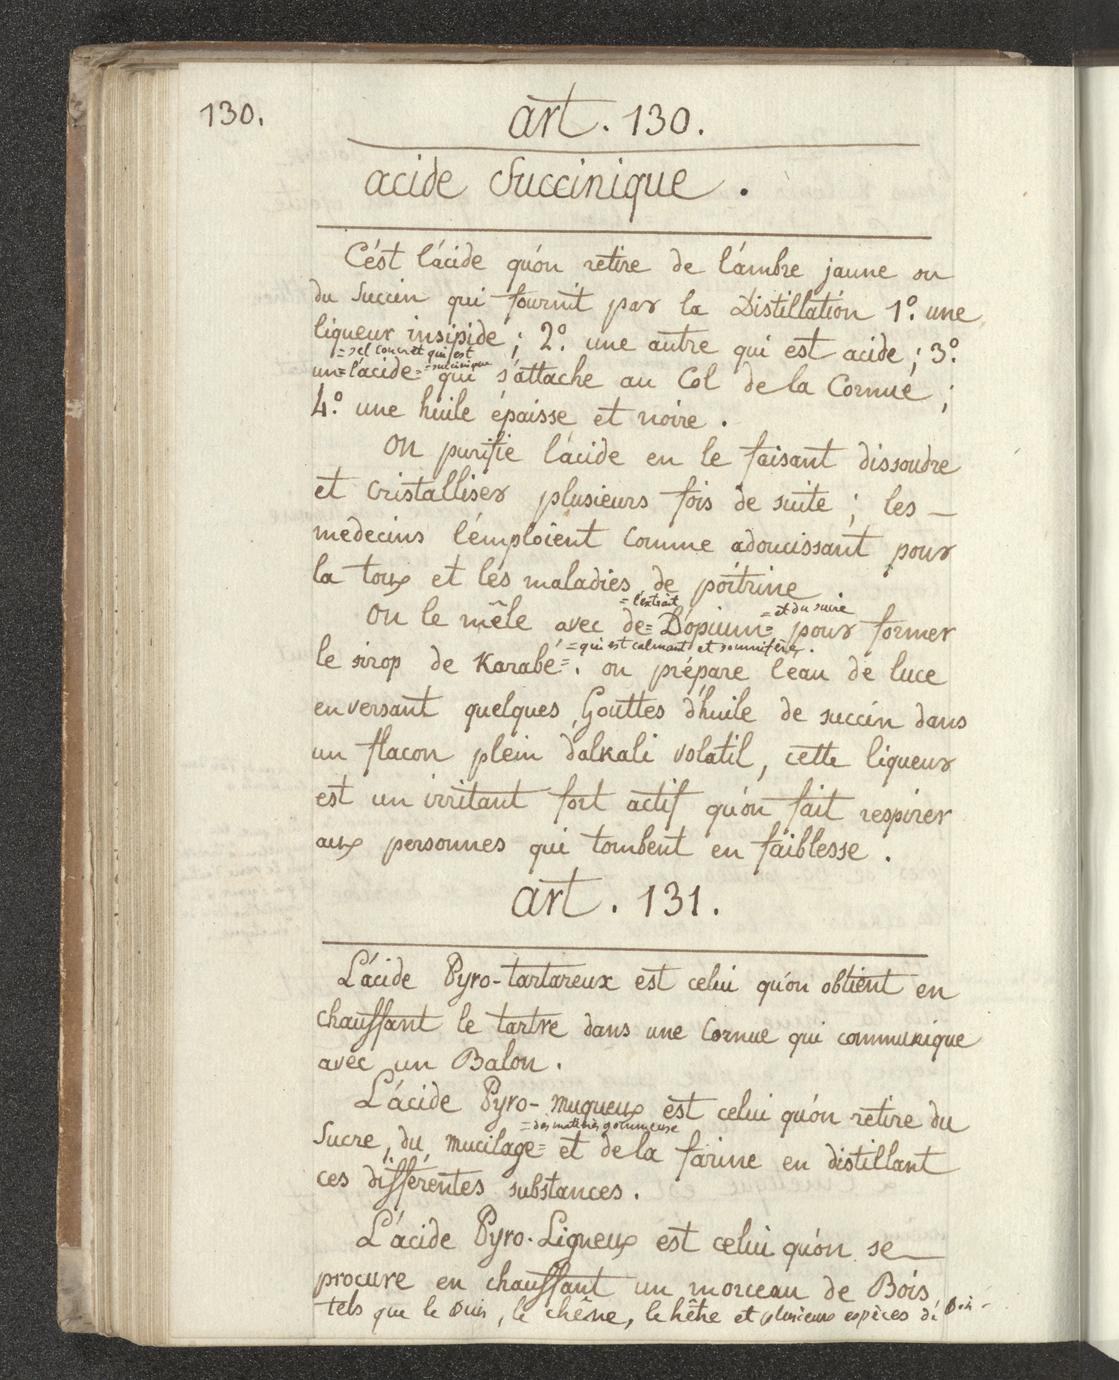 130.
art. 130.
acide Succinique.
C'est l'acide qu'on retire de l'ambre jaune ou
du Succin qui fournit par la Distillation 1º. une
liqueur insipide; 2º. une autre qui est acide; 3º.
=sel concret qui est
un= l'acide= =succinique qui s'attache au Col de la Cornue;
4º. une huile épaisse et noire.
On purifie l'acide en le faisant dissoudre
et cristalliser plusieurs fois de suite; les —
medecins l'emploient comme adoucissant pour
la toux et les maladies de poitrine.
=l'extrait =et du sucre
On le mêle avec de= D'opium= pour former
=qui est calmant et somnifère.
le sirop de Karabé=. on prépare l'eau de luce
en versant quelques Gouttes d'huile de succin dans
un flacon plein d'alkali volatil, cette liqueur
est un irritant fort actif qu'on fait respirer
aux personnes qui tombent en faiblesse.
art. 131.
L'acide Pyro-tartareux est celui qu'on obtient en
chauffant le tartre dans une Cornue qui communique
avec un Balon.
L'acide Pyro-muqueux est celui qu'on retire du
=des matières gommeuse
Sucre, du mucilage= et de la farine en distillant
ces différentes substances.
L'acide Pyro-Ligneux est celui qu'on se —
procure en chauffant un morceau de Bois
tels que le , le chêne, le hêtre et plusieurs espèces de